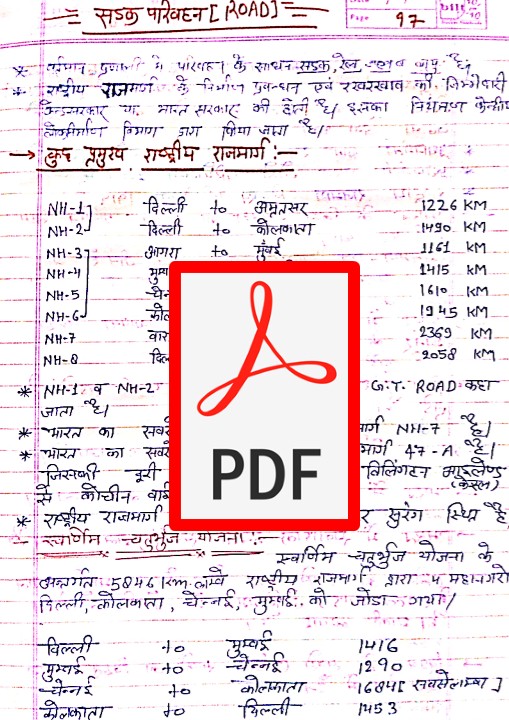 सड़क परिवहन [ROAD]
97
* परिवहन के साधन सड़क, रेल, जल व वायु है।
* राष्ट्रीय राजमार्ग के निर्माण प्रबन्धन एवं रखरखाव की जिम्मेदारी
भारत सरकार की होती है। इसका नियंत्रण केन्द्रीय
लोकनिर्माण विभाग द्वारा किया जाता है।
→ कुछ प्रमुख राष्ट्रीय राजमार्ग :-
NH-1 दिल्ली to अमृतसर 1226 KM
NH-2 दिल्ली to कोलकाता 1490 KM
NH-3 आगरा to मुंबई 1161 KM
NH-4 1415 KM
NH-5 1610 KM
NH-6 1945 KM
NH-7 2369 KM
NH-8 2058 KM
* NH-1 व NH-2 G.T. ROAD कहा
जाता है।
* भारत का NH-7 है।
* भारत का 47-A है।
जिसकी दूरी विलिंगटन आइलैण्ड (केरल)
से कोचीन
* राष्ट्रीय राजमार्ग सुरंग स्थित है
PDF
- स्वर्णिम चतुर्भुज योजना :-
स्वर्णिम चतुर्भुज योजना के
अन्तर्गत 5846 Km लम्बे राष्ट्रीय राजमार्ग द्वारा 4 महानगरो
दिल्ली, कोलकाता, चेन्नई, मुम्बई को जोडा गया।
दिल्ली to मुम्बई 1416
मुम्बई to चेन्नई 1290
चेन्नई to कोलकाता 1684 [सबसे लम्बा]
कोलकाता to दिल्ली 1453